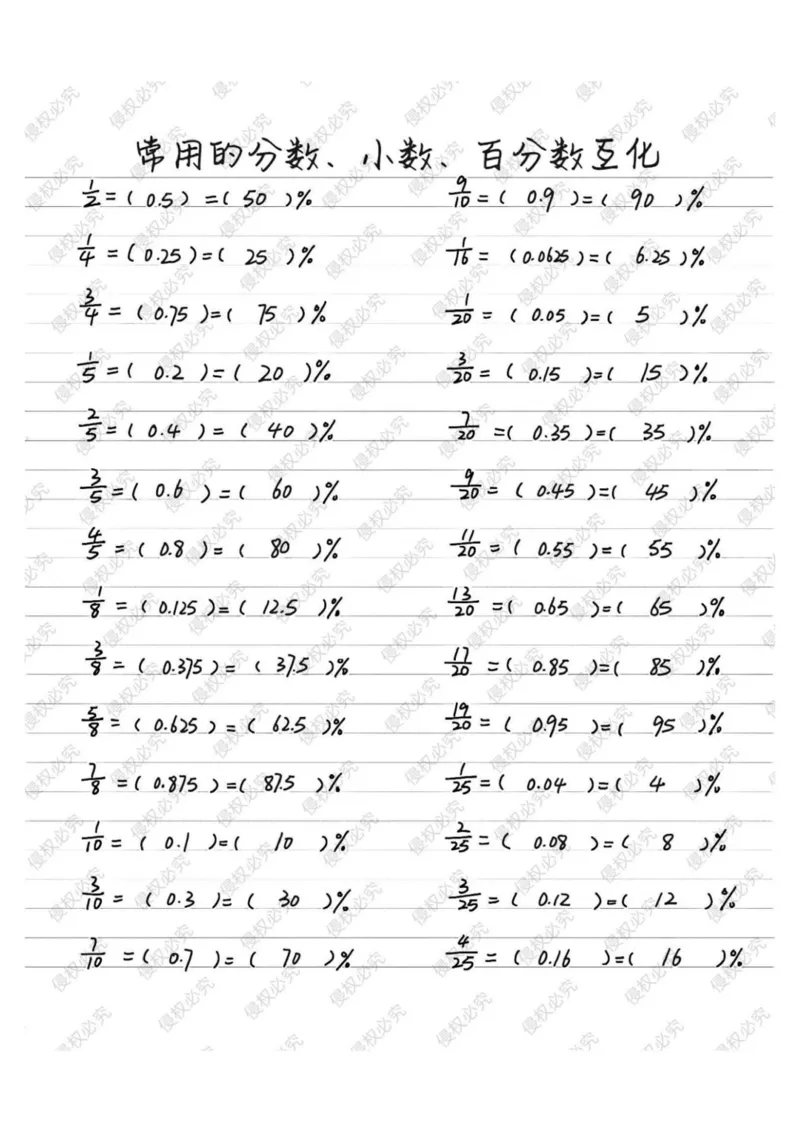 常用的分数、小数、百分数互化
1/2=(0.5)=(50)%
1/4=(0.25)=(25)%
3/4=(0.75)=(75)%
1/5=(0.2)=(20)%
2/5=(0.4)=(40)%
3/5=(0.6)=(60)%
4/5=(0.8)=(80)%
1/8=(0.125)=(12.5)%
3/8=(0.375)=(37.5)%
5/8=(0.625)=(62.5)%
7/8=(0.875)=(87.5)%
1/10=(0.1)=(10)%
3/10=(0.3)=(30)%
7/10=(0.7)=(70)%
9/10=(0.9)=(90)%
1/16=(0.0625)=(6.25)%
1/20=(0.05)=(5)%
3/20=(0.15)=(15)%
7/20=(0.35)=(35)%
9/20=(0.45)=(45)%
11/20=(0.55)=(55)%
13/20=(0.65)=(65)%
17/20=(0.85)=(85)%
19/20=(0.95)=(95)%
1/25=(0.04)=(4)%
2/25=(0.08)=(8)%
3/25=(0.12)=(12)%
4/25=(0.16)=(16)%
侵权必究